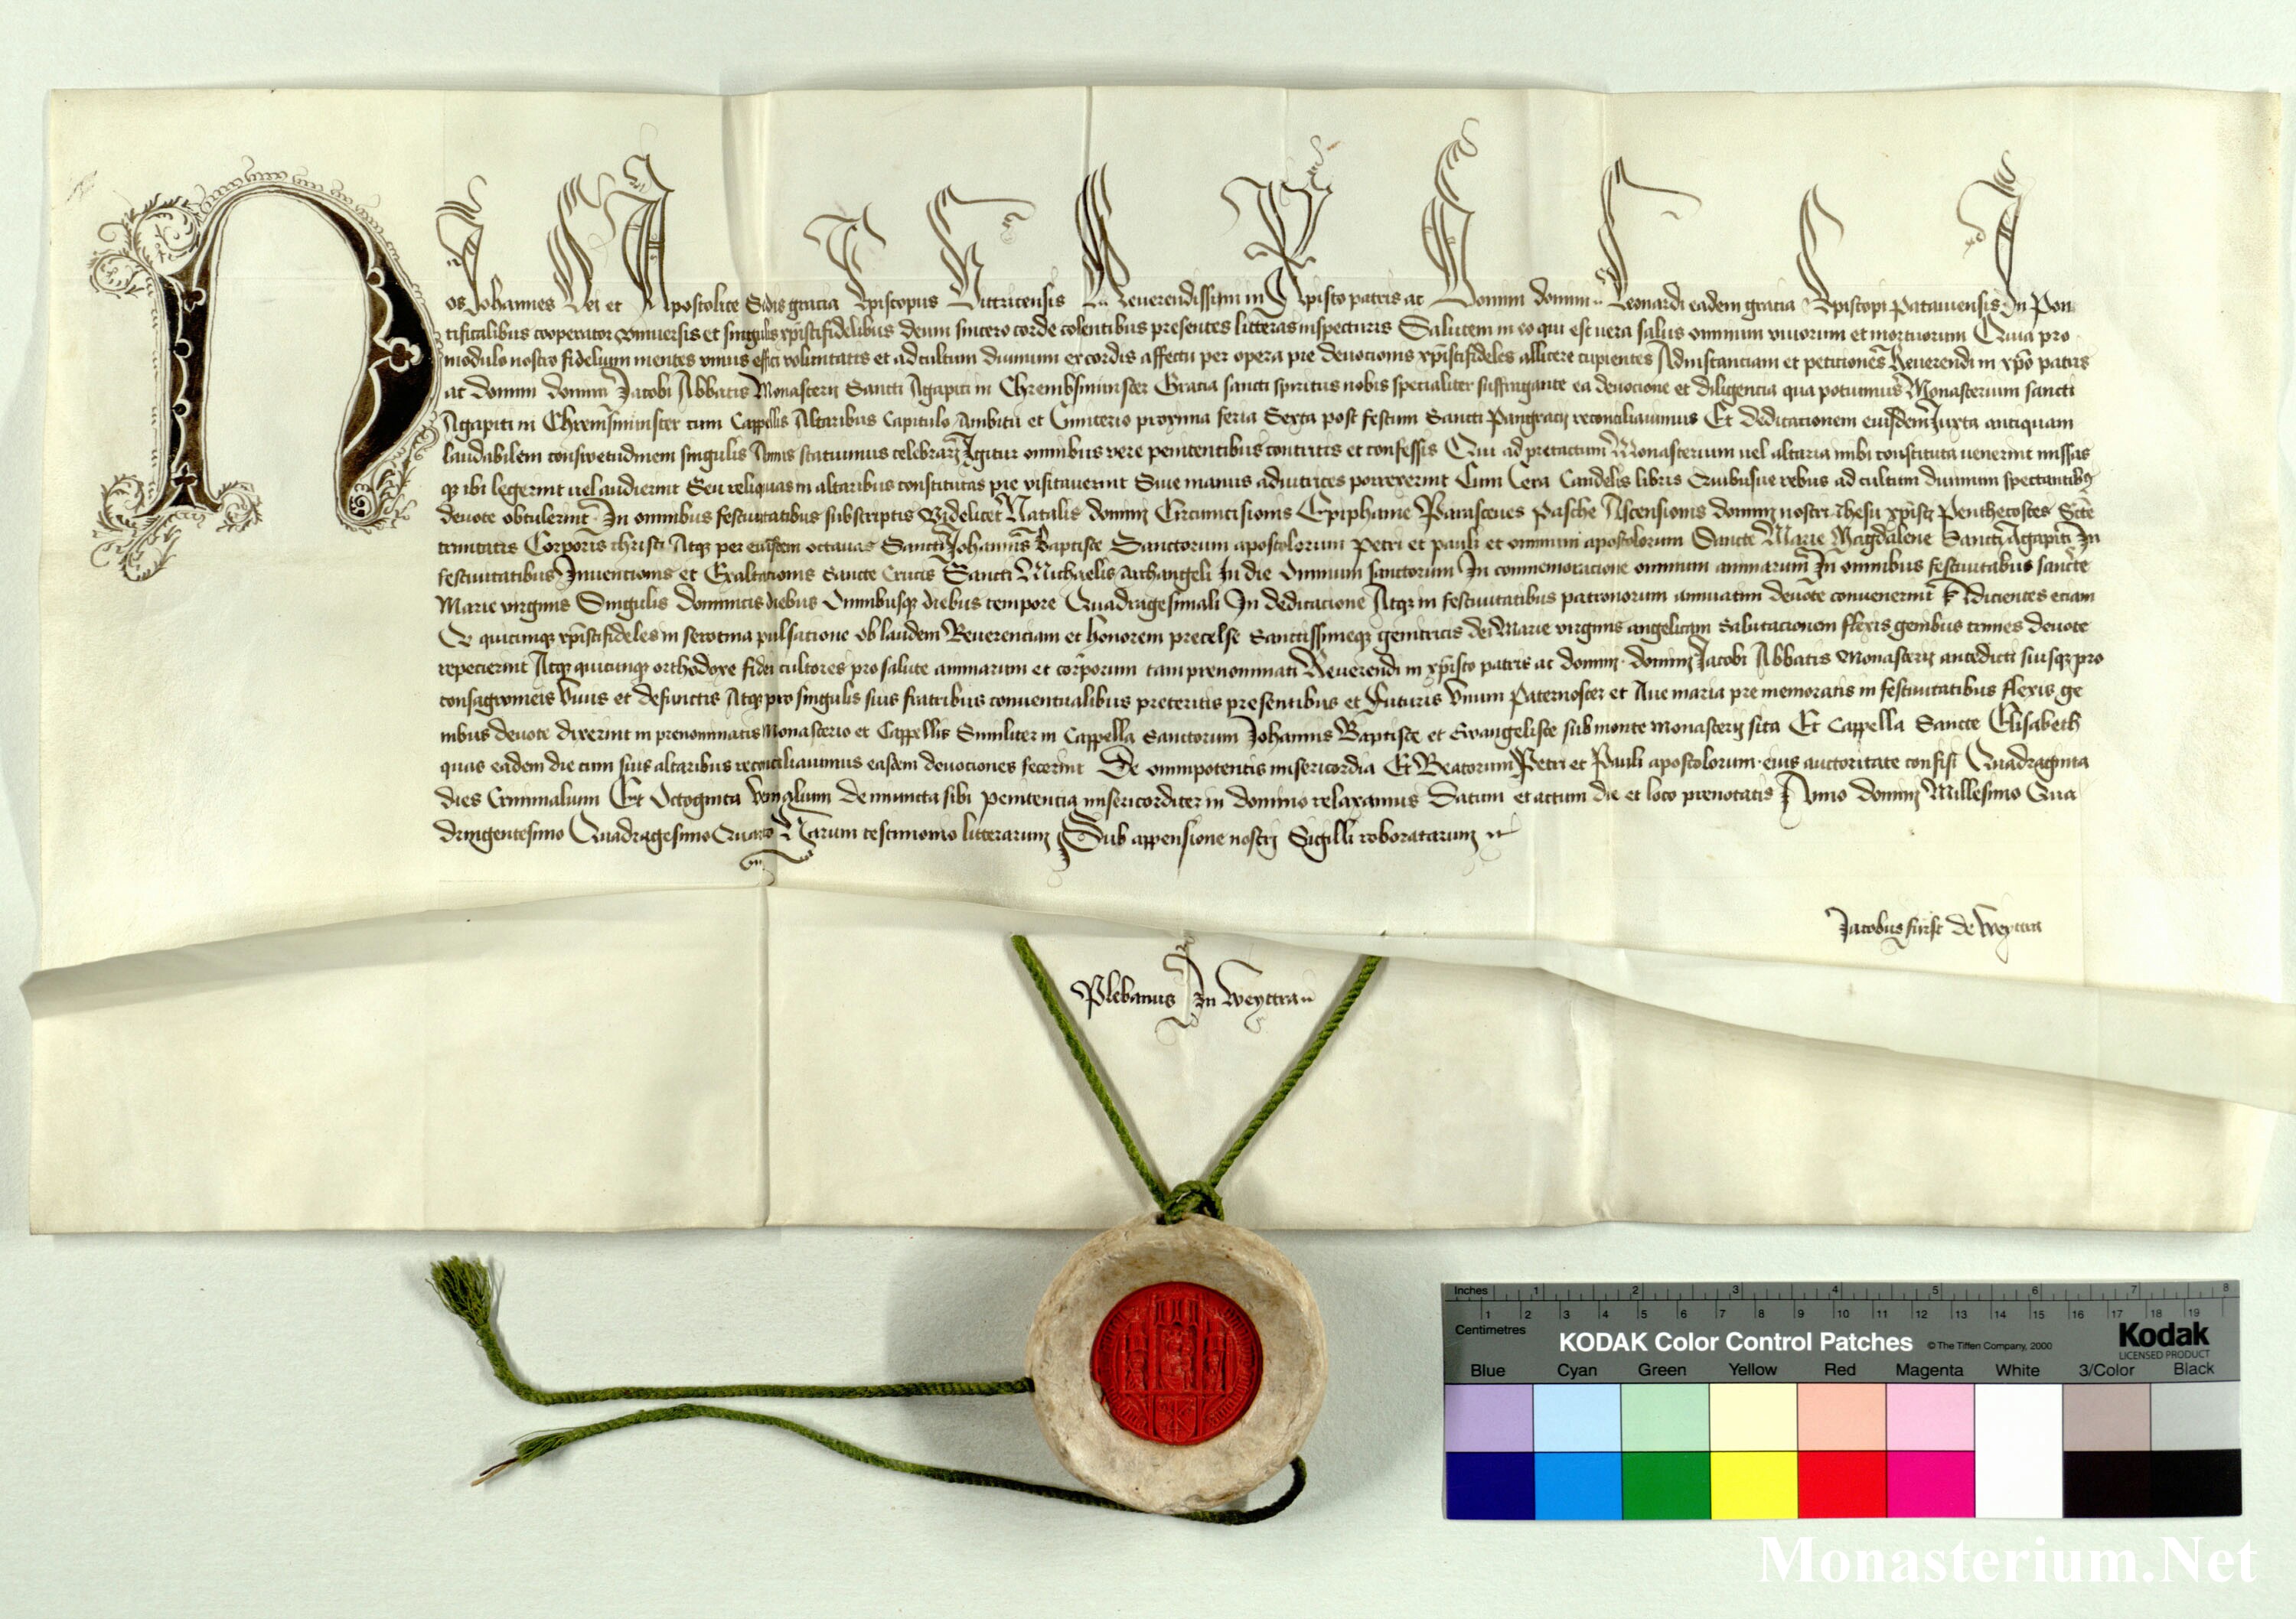 Nos Johannes Dei et Apostolice Sedis gracia Episcopus Victricensis In Reuerendissimi in Xpisto patris ac Domini domini Leonardi eadem gracia Episcopi Patauiensis In Pon
tificalibus cooperator vniuersis et singulis xpistifidelibus deum sincero corde colentibus presentes litteras inspecturis Salutem in eo qui est uera salus omnium viuorum et mortuorum Quia pro
modulo nostro fidelium mentes vnius effici voluntatis et ad cultum diuinum ex cordis affectu per opera pie deuocionis xpistifideles allicere cupientes Ad instanciam et peticiones Reuerendi in xpo patris
ac domini domini Jacobi Abbatis Monasterij Sancti Agapiti in Chrembsminster Gracia sancti spiritus nobis specialiter suffragante ea deuocione et diligencia qua potuimus Monasterium sancti
Agapiti in Chremsminster cum Cappellis Altaribus Capitulo Ambitu et Cimiterio proxima feria Sexta post festum Sancti Pangracij reconciliauimus Et dedicationem eiusdem Juxta antiquam
laudabilem consuetudinem singulis Annis statuimus celebrari Igitur omnibus vere penitentibus contritis et confessis Qui ad pretactum Monasterium uel altaria inibi constituta uenerint missas
qz ibi legerint uel audierint Seu reliquias in altaribus constitutas pie visitauerint Siue manus adiutrices porrexerint Cum Cera Candelis libris Quibusue rebus ad cultum diuinum spectantibus
deuote obtulerint In omnibus festiuitatibus subscriptis Videlicet Natalis domini Circumcisionis Epiphanie Parasceues Pasche Ascensionis domini nostri ihesu xpisti Penthecostes Scte
trinitatis Corporis christi Atqz per eiusdem octauas Sancti Johannis Baptiste Sanctorum apostolorum Petri et pauli et omnium apostolorum Sancte Marie Magdalene Sancti Agapiti In
festiuitatibus Inuencionis et Exaltacionis Sancte Crucis Sancti Michaelis archangeli In die Omnium sanctorum In commemoracione omnium animarum In omnibus festiuitatibus sancte
Marie virginis Singulis dominicis diebus Omnibusqz diebus tempore Quadragesimali In dedicacione Atqz in festiuitatibus patronorum annuatim deuote conuenerint Adicientes eciam
Vt quicunqz xpistifideles in serotina pulsacione ob laudem Reuerenciam et honorem precelse Sanctissimeqz genitricis dei Marie virginis angelicam salutacionem flexis genibus trines deuote
repecierint Atqz quicunqz orthodoxe fidei cultores pro salute animarum et corporum tam prenominati Reuerendi in xpisto patris ac domini domini Jacobi Abbatis Monasterij antedicti suisqz pro
consagwineis viuis et defunctis Atqz pro singulis suis fratribus conuentualibus preteritis presentibus et Futuris Vnum Paternoster et Aue maria pre memoratis in festiuitatibus flexis ge
nibus deuote dixerint in prenominatis Monasterio et Cappellis Similiter in Cappella Sanctorum Johannis Baptiste et Ewangeliste sub monte monasterij sita Et Cappella Sancte Elisabeth
quas eadem die cum suis altaribus reconciliauimus easdem deuociones fecerint De omnipotentis misericordia Et Beatorum Petri et Pauli apostolorum eius auctoritate confisi Quadraginta
dies Criminalium Et Octoginta Venialium de iniuncta sibi penitencia misericorditer in domino relaxamus Datum et actum die et loco prenotatis Anno domini Millesimo Qua
dringentesimo Quadragesimo Quarto Harum testimonio litterarum Sub appensione nostri Sigilli roboratarum
Jacobus fürst de Weyttra
Plebanus In Weyttra
Inches 1 2 3 4 5 6 7 8
1 2 3 4 5 6 7 8 9 10 11 12 13 14 15 16 17 18 19
Centimetres
KODAK Color Control Patches © The Tiffen Company, 2000 Kodak
LICENSED PRODUCT
Blue Cyan Green Yellow Red Magenta White 3/Color Black
Monasterium.Net